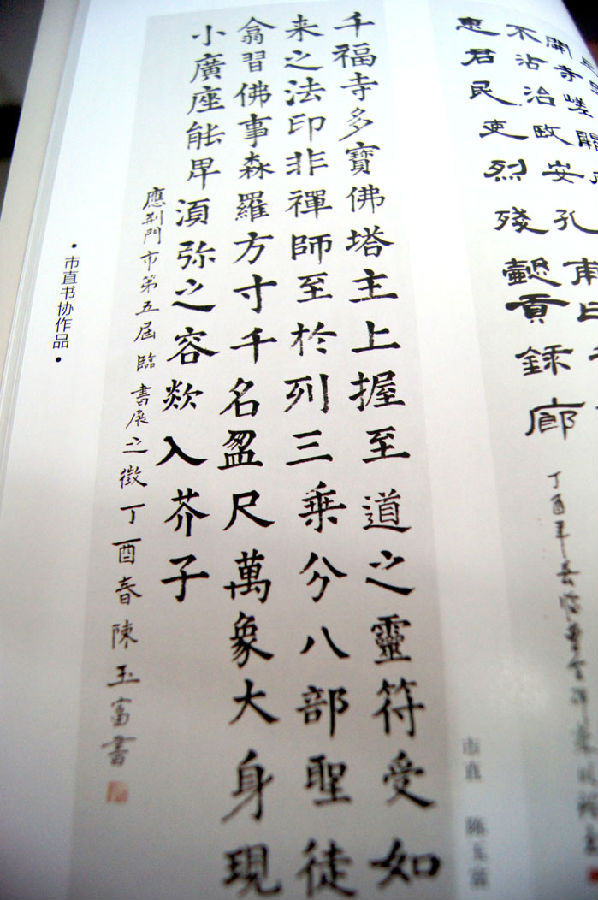 不沾治政安孔
惠君民吏烈殘懿貢録廊
丁酉年
市直 陈玉富
千福寺多寶佛塔主上握至道之靈符受如
来之法印非禪師至於列三乗分八部聖徒
翕習佛事森羅方寸千名盈尺萬象大身現
小廣座能卑湏弥之容欻入芥子
應荆門市第五届臨書展之徵丁酉春陳玉富書
•市直书协作品•